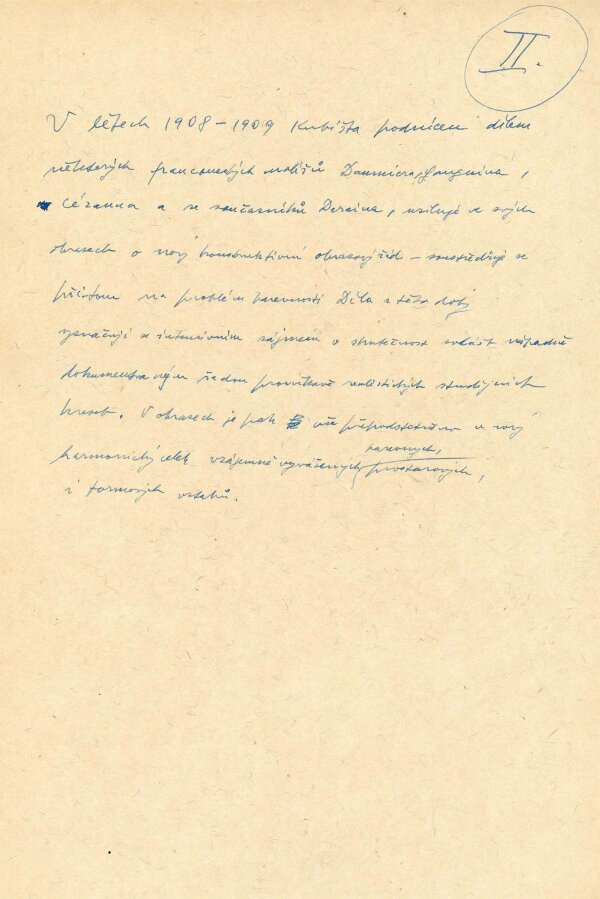 II.
V létech 1908–1909 Kubišta podnícen dílem
některých francouzských malířů Daumiera, Gauguina,
Cézanna a ze současníků Deraina, usiluje ve svých
obrazech o nový konstruktivní obrazový řád – soustřeďuje se
přitom na problém barevnosti Díla z této doby
vyznačují se intensivním zájmem o skutečnost zvlášť nápadně
dokumentovaným řadou pronikavě realistických studijních
kreseb. V obrazech je pak vše přepodstatněno v nový
harmonický celek vzájemně vyvážených barevných, prostorových,
i formových vztahů.